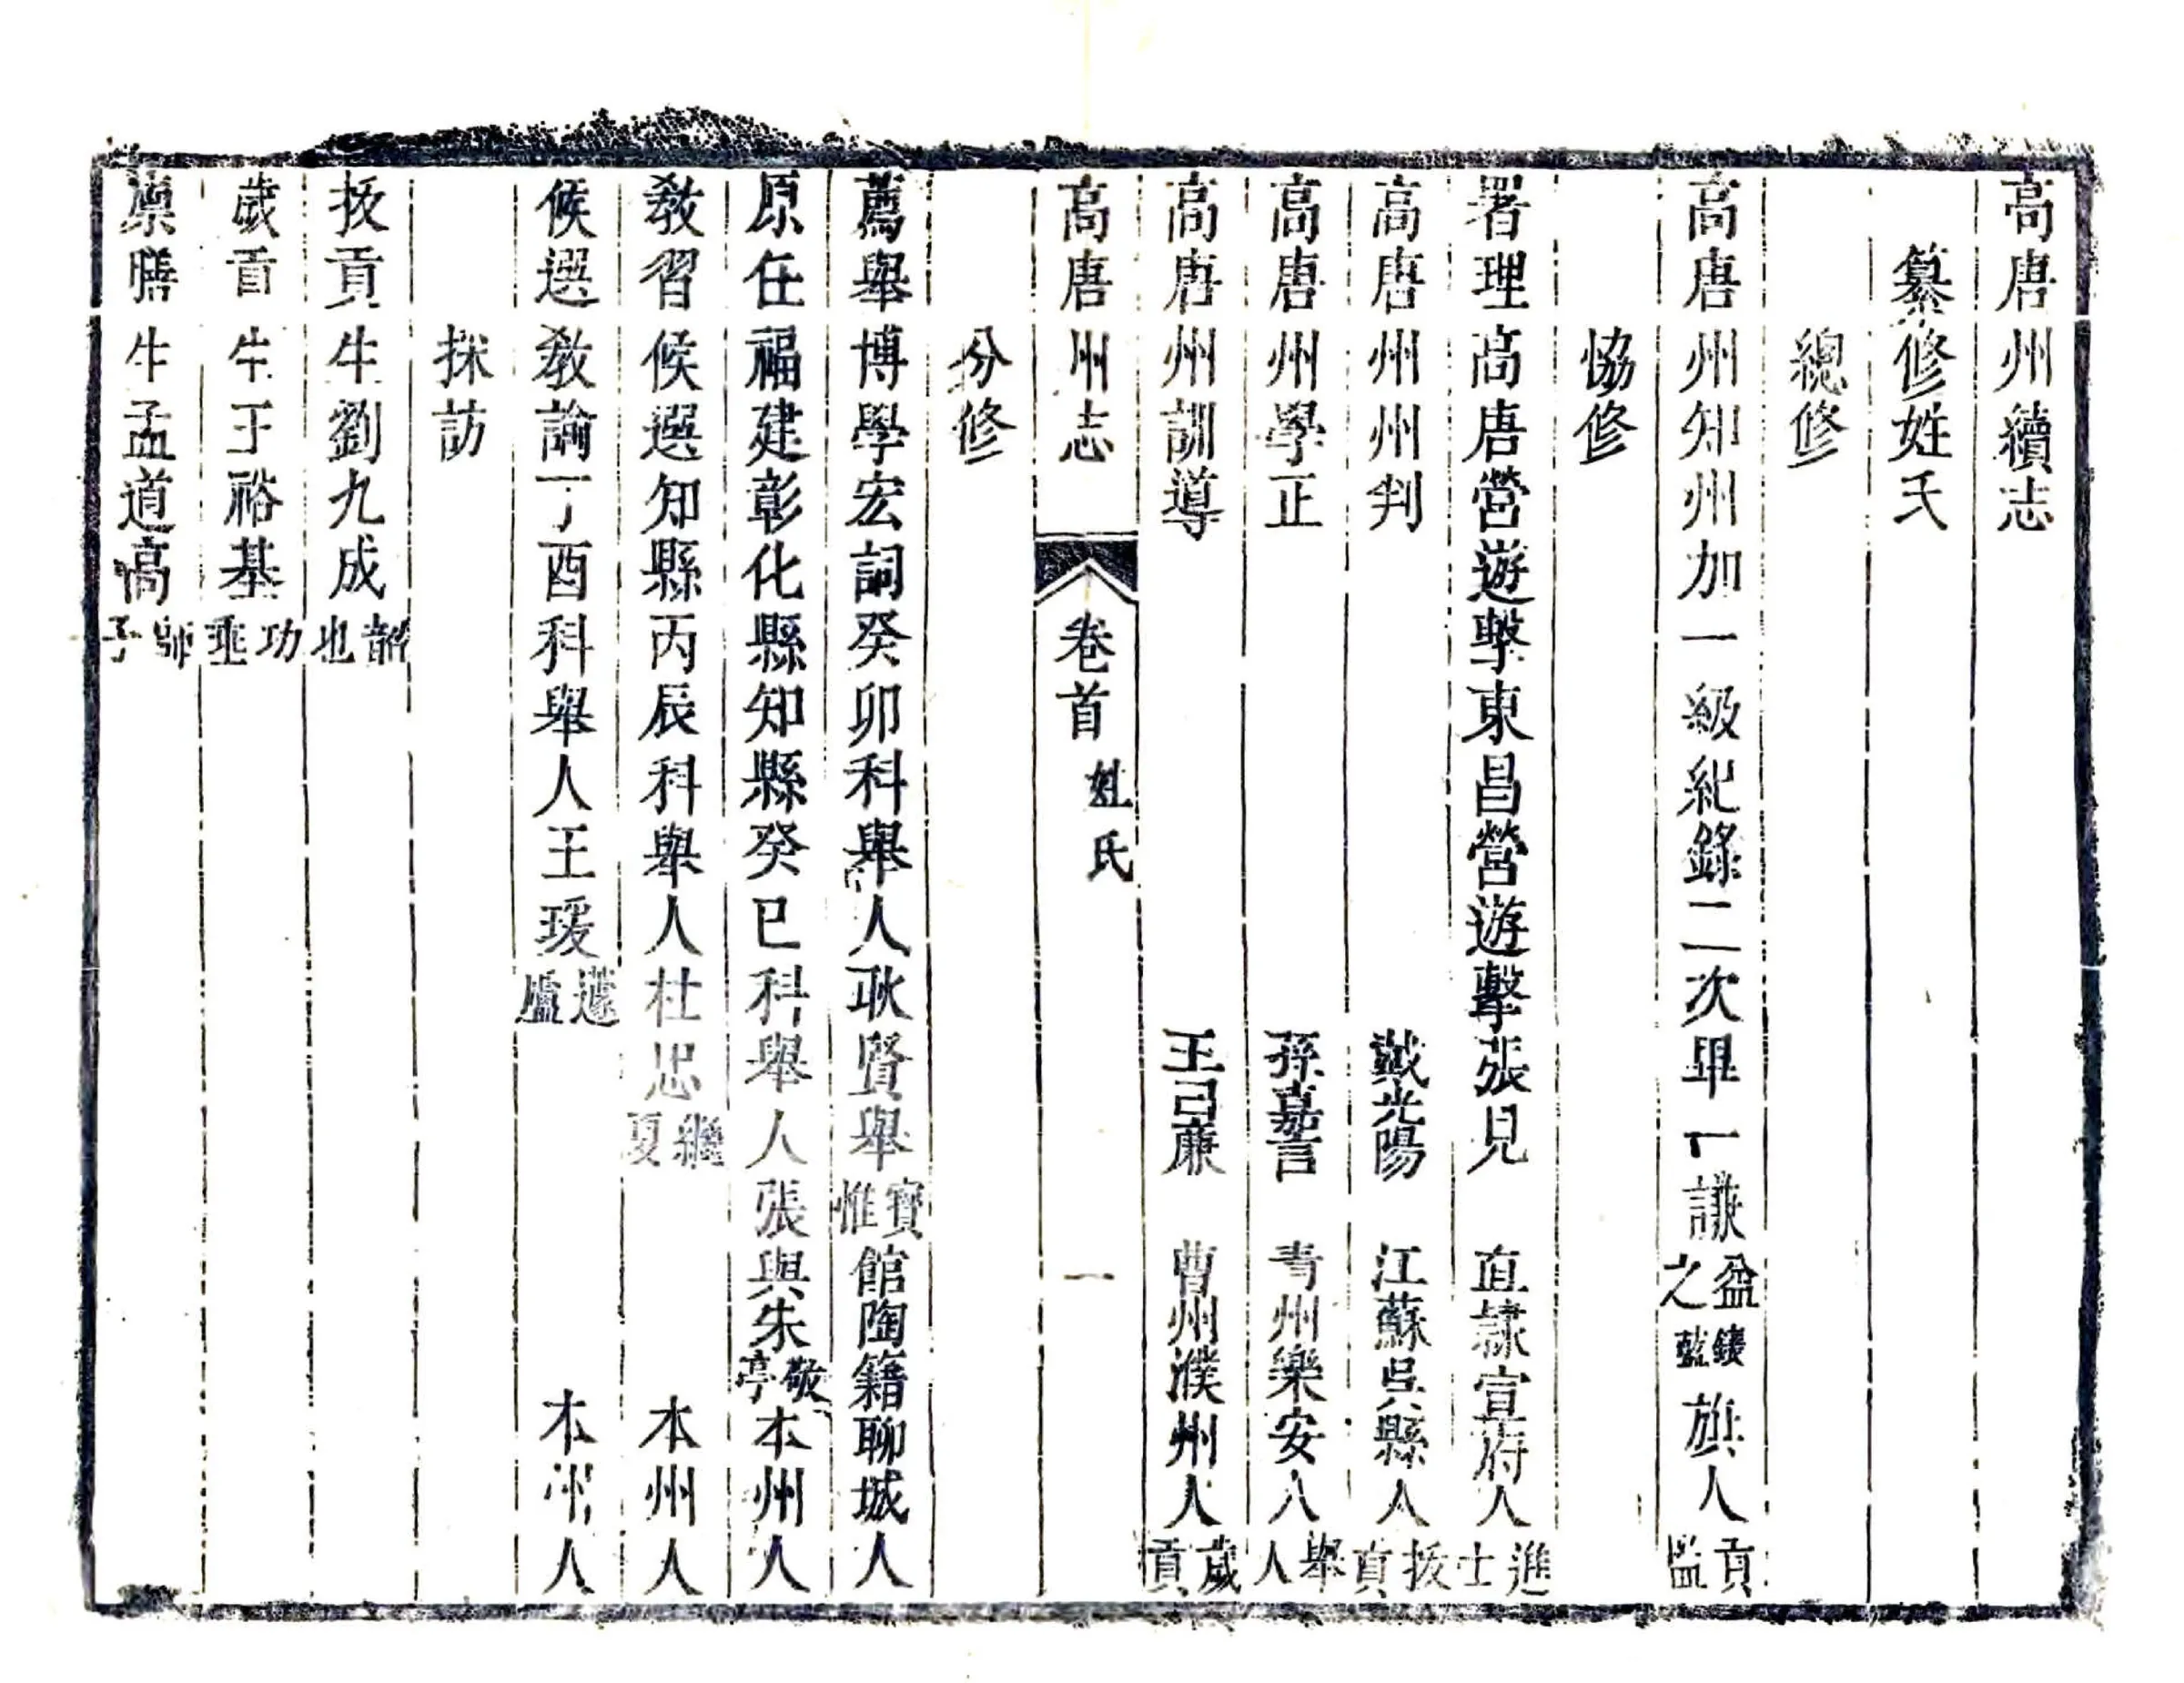 高唐州續志
纂修姓氏
總修
高唐州知州加一級紀錄二次畢一謙益之鑲藍旗人貢監
協修
署理高唐營遊擊東昌營遊擊張見直隸宣府人進士
高唐州州判戴光陽江蘇吳縣人拔貢
高唐州學正孫嘉言青州樂安人舉人
高唐州訓導王己廉曹州濮州人歲貢
高唐州志卷首姓氏一
分修
薦舉博學宏詞癸卯科舉人耿賢舉賓惟館陶籍聊城人
原任福建彰化縣知縣癸巳科舉人張與朱敬亭本州人
教習候選知縣丙辰科舉人杜忠繼夏本州人
候選教諭丁酉科舉人王瑗蘧廬本州人
採訪
拔貢生劉九成韶也
歲貢生于裕基功垂
廩膳生孟道高師子